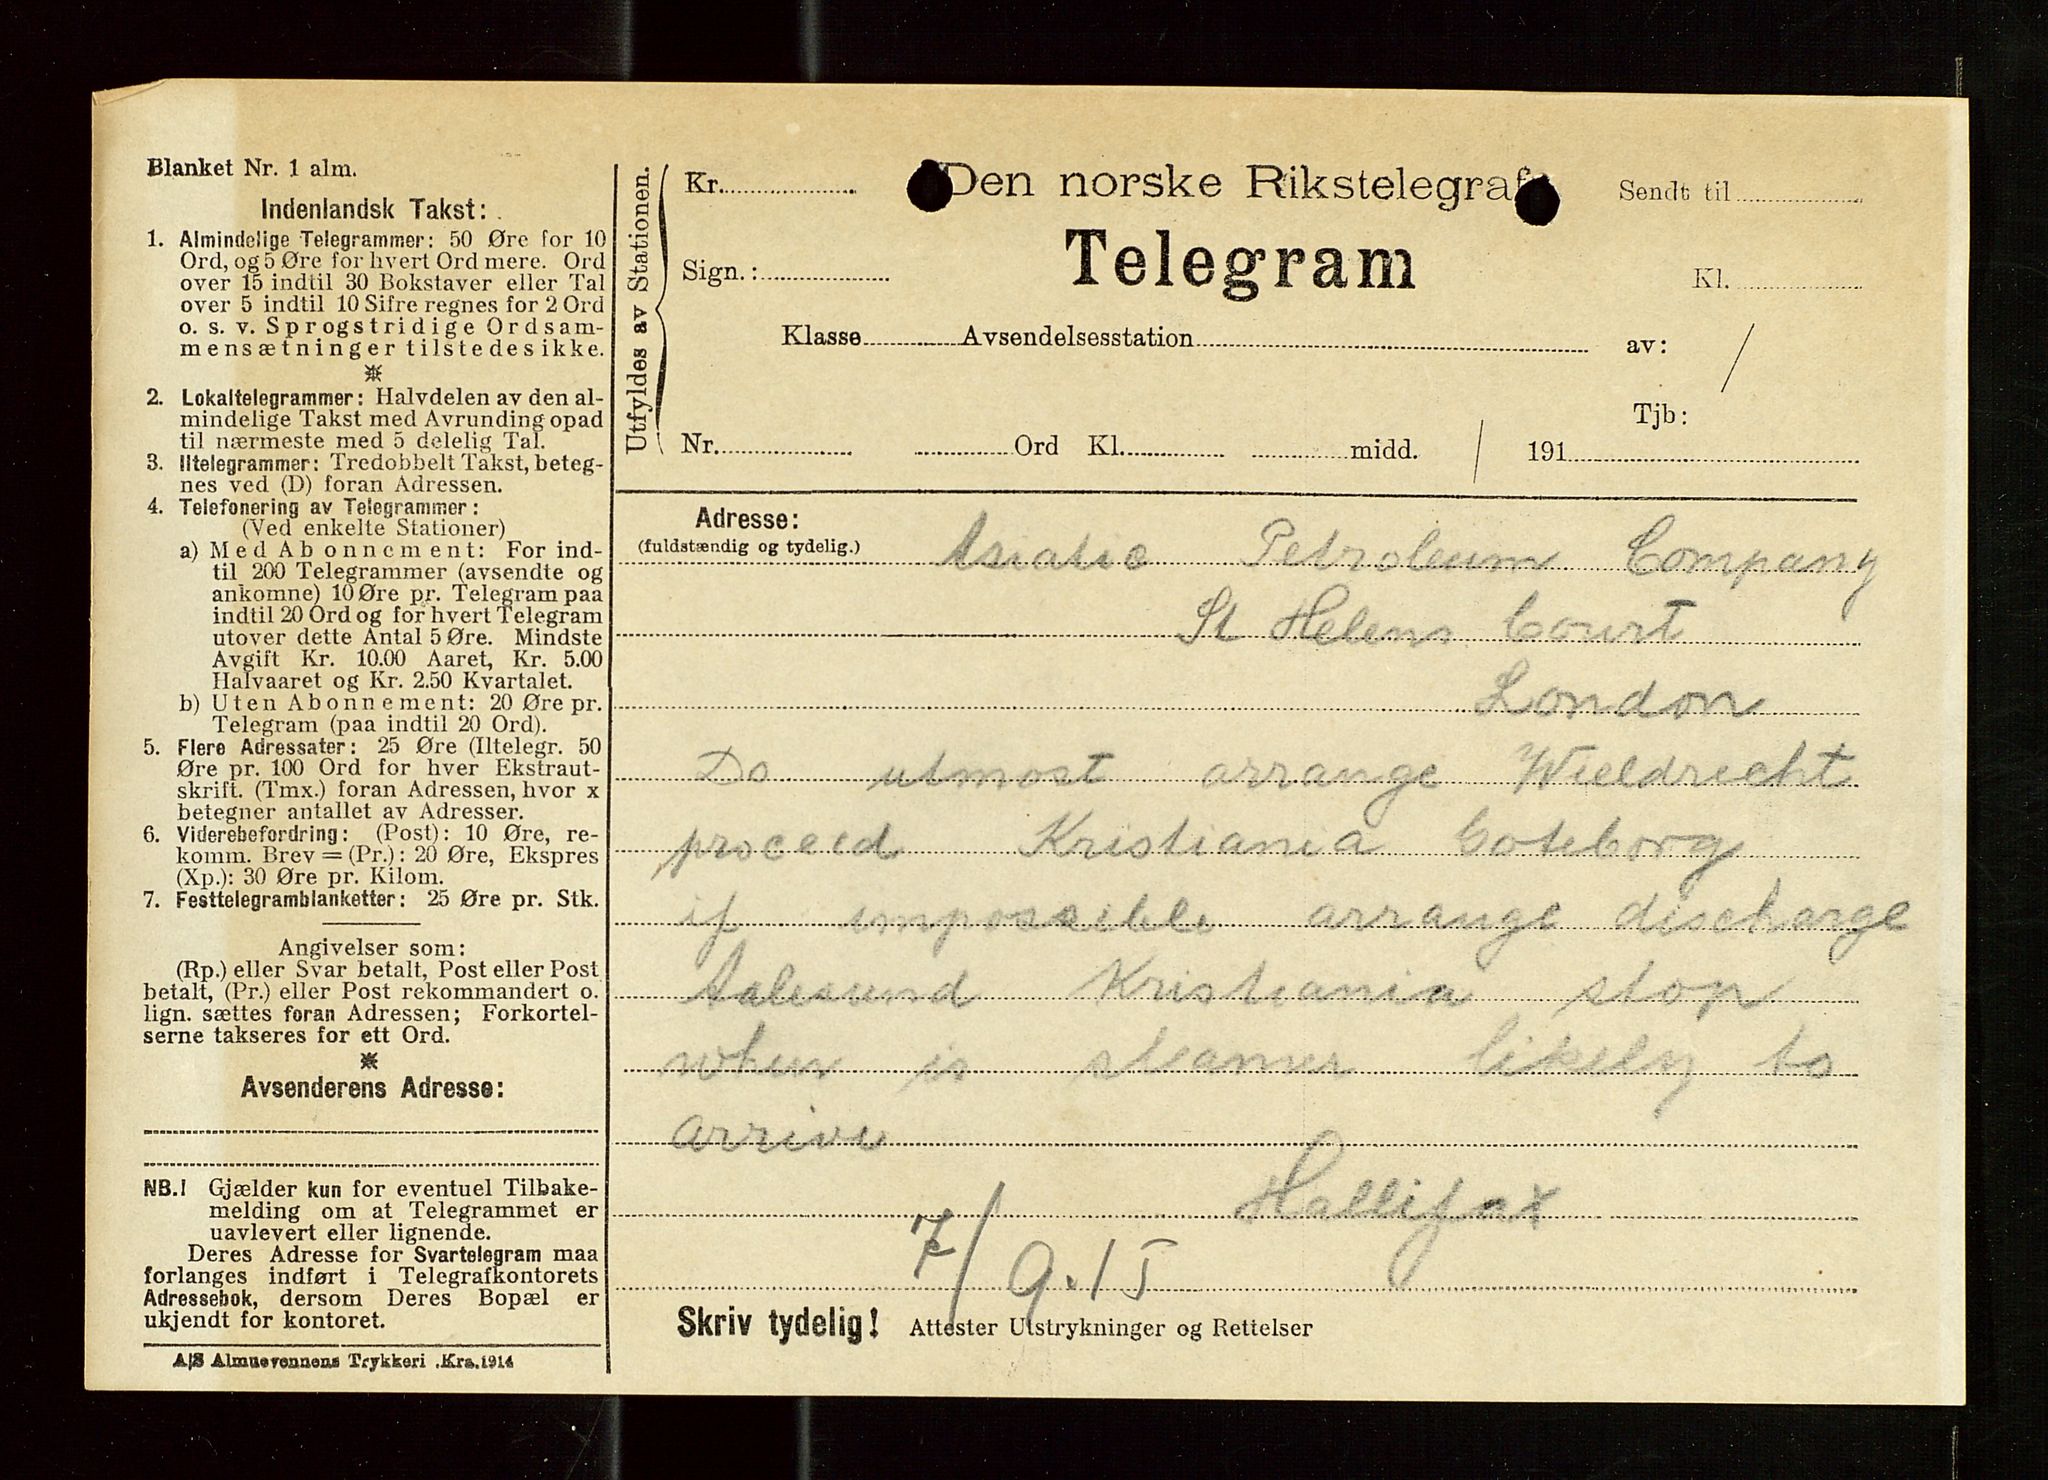 Blanket Nr. 1 alm.
Indenlandsk Takst:
1. Almindelige Telegrammer: 50 Øre for 10
Ord, og 5 Øre for hvert Ord mere. Ord
over 15 indtil 30 Bokstaver eller Tal
over 5 indtil 10 Sifre regnes for 2 Ord
o. s. v. Sprogstridige Ordsam-
mensætninger tilstedes ikke.
2. Lokaltelegrammer: Halvdelen av den al-
mindelige Takst med Avrunding opad
til nærmeste med 5 delelig Tal.
3. Iltelegrammer: Tredobbelt Takst, beteg-
nes ved (D) foran Adressen.
4. Telefonering av Telegrammer:
(Ved enkelte Stationer)
a) Med Abonnement: For ind-
til 200 Telegrammer (avsendte og
ankomne) 10 Øre pr. Telegram paa
indtil 20 Ord og for hvert Telegram
utover dette Antal 5 Øre. Mindste
Avgift Kr. 10.00 Aaret, Kr. 5.00
Halvaaret og Kr. 2.50 Kvartalet.
b) Uten Abonnement: 20 Øre pr.
Telegram (paa indtil 20 Ord).
5. Flere Adressater: 25 Øre (Iltelegr. 50
Øre pr. 100 Ord for hver Ekstraut-
skrift. (Tmx.) foran Adressen, hvor x
betegner antallet av Adresser.
6. Viderebefordring: (Post): 10 Øre, re-
komm. Brev = (Pr.): 20 Øre, Ekspres
(Xp.): 30 Øre pr. Kilom.
7. Festtelegramblanketter: 25 Øre pr. Stk.
Angivelser som:
(Rp.) eller Svar betalt, Post eller Post
betalt, (Pr.) eller Post rekommandert o.
lign. sættes foran Adressen; Forkortel-
serne takseres for ett Ord.
Avsenderens Adresse:
NB.! Gjælder kun for eventuel Tilbake-
melding om at Telegrammet er
uavlevert eller lignende.
Deres Adresse for Svartelegram maa
forlanges indført i Telegrafkontorets
Adressebok, dersom Deres Bopæl er
ukjendt for kontoret.
A/S Almuevennens Trykkeri .Kra. 1914
Utfyldes av Stationen.
Kr. Den norske Rikstelegraf Sendt til
Sign.: Telegram Kl.
Klasse Avsendelsesstation av: /
Tjb:
Nr. Ord Kl. midd. / 191
Adresse:
(fuldstændig og tydelig.)
Asiatic Petroleum Company
St Helens Court
London
Do utmost arrange Wieldrecht
proceed Kristiania Goteborg
if impossible arrange discharge
Aalesund Kristiania stop
when is steamer likely to
arrive
Hallifax
7/9.15
Skriv tydelig! Attester Utstrykninger og Rettelser